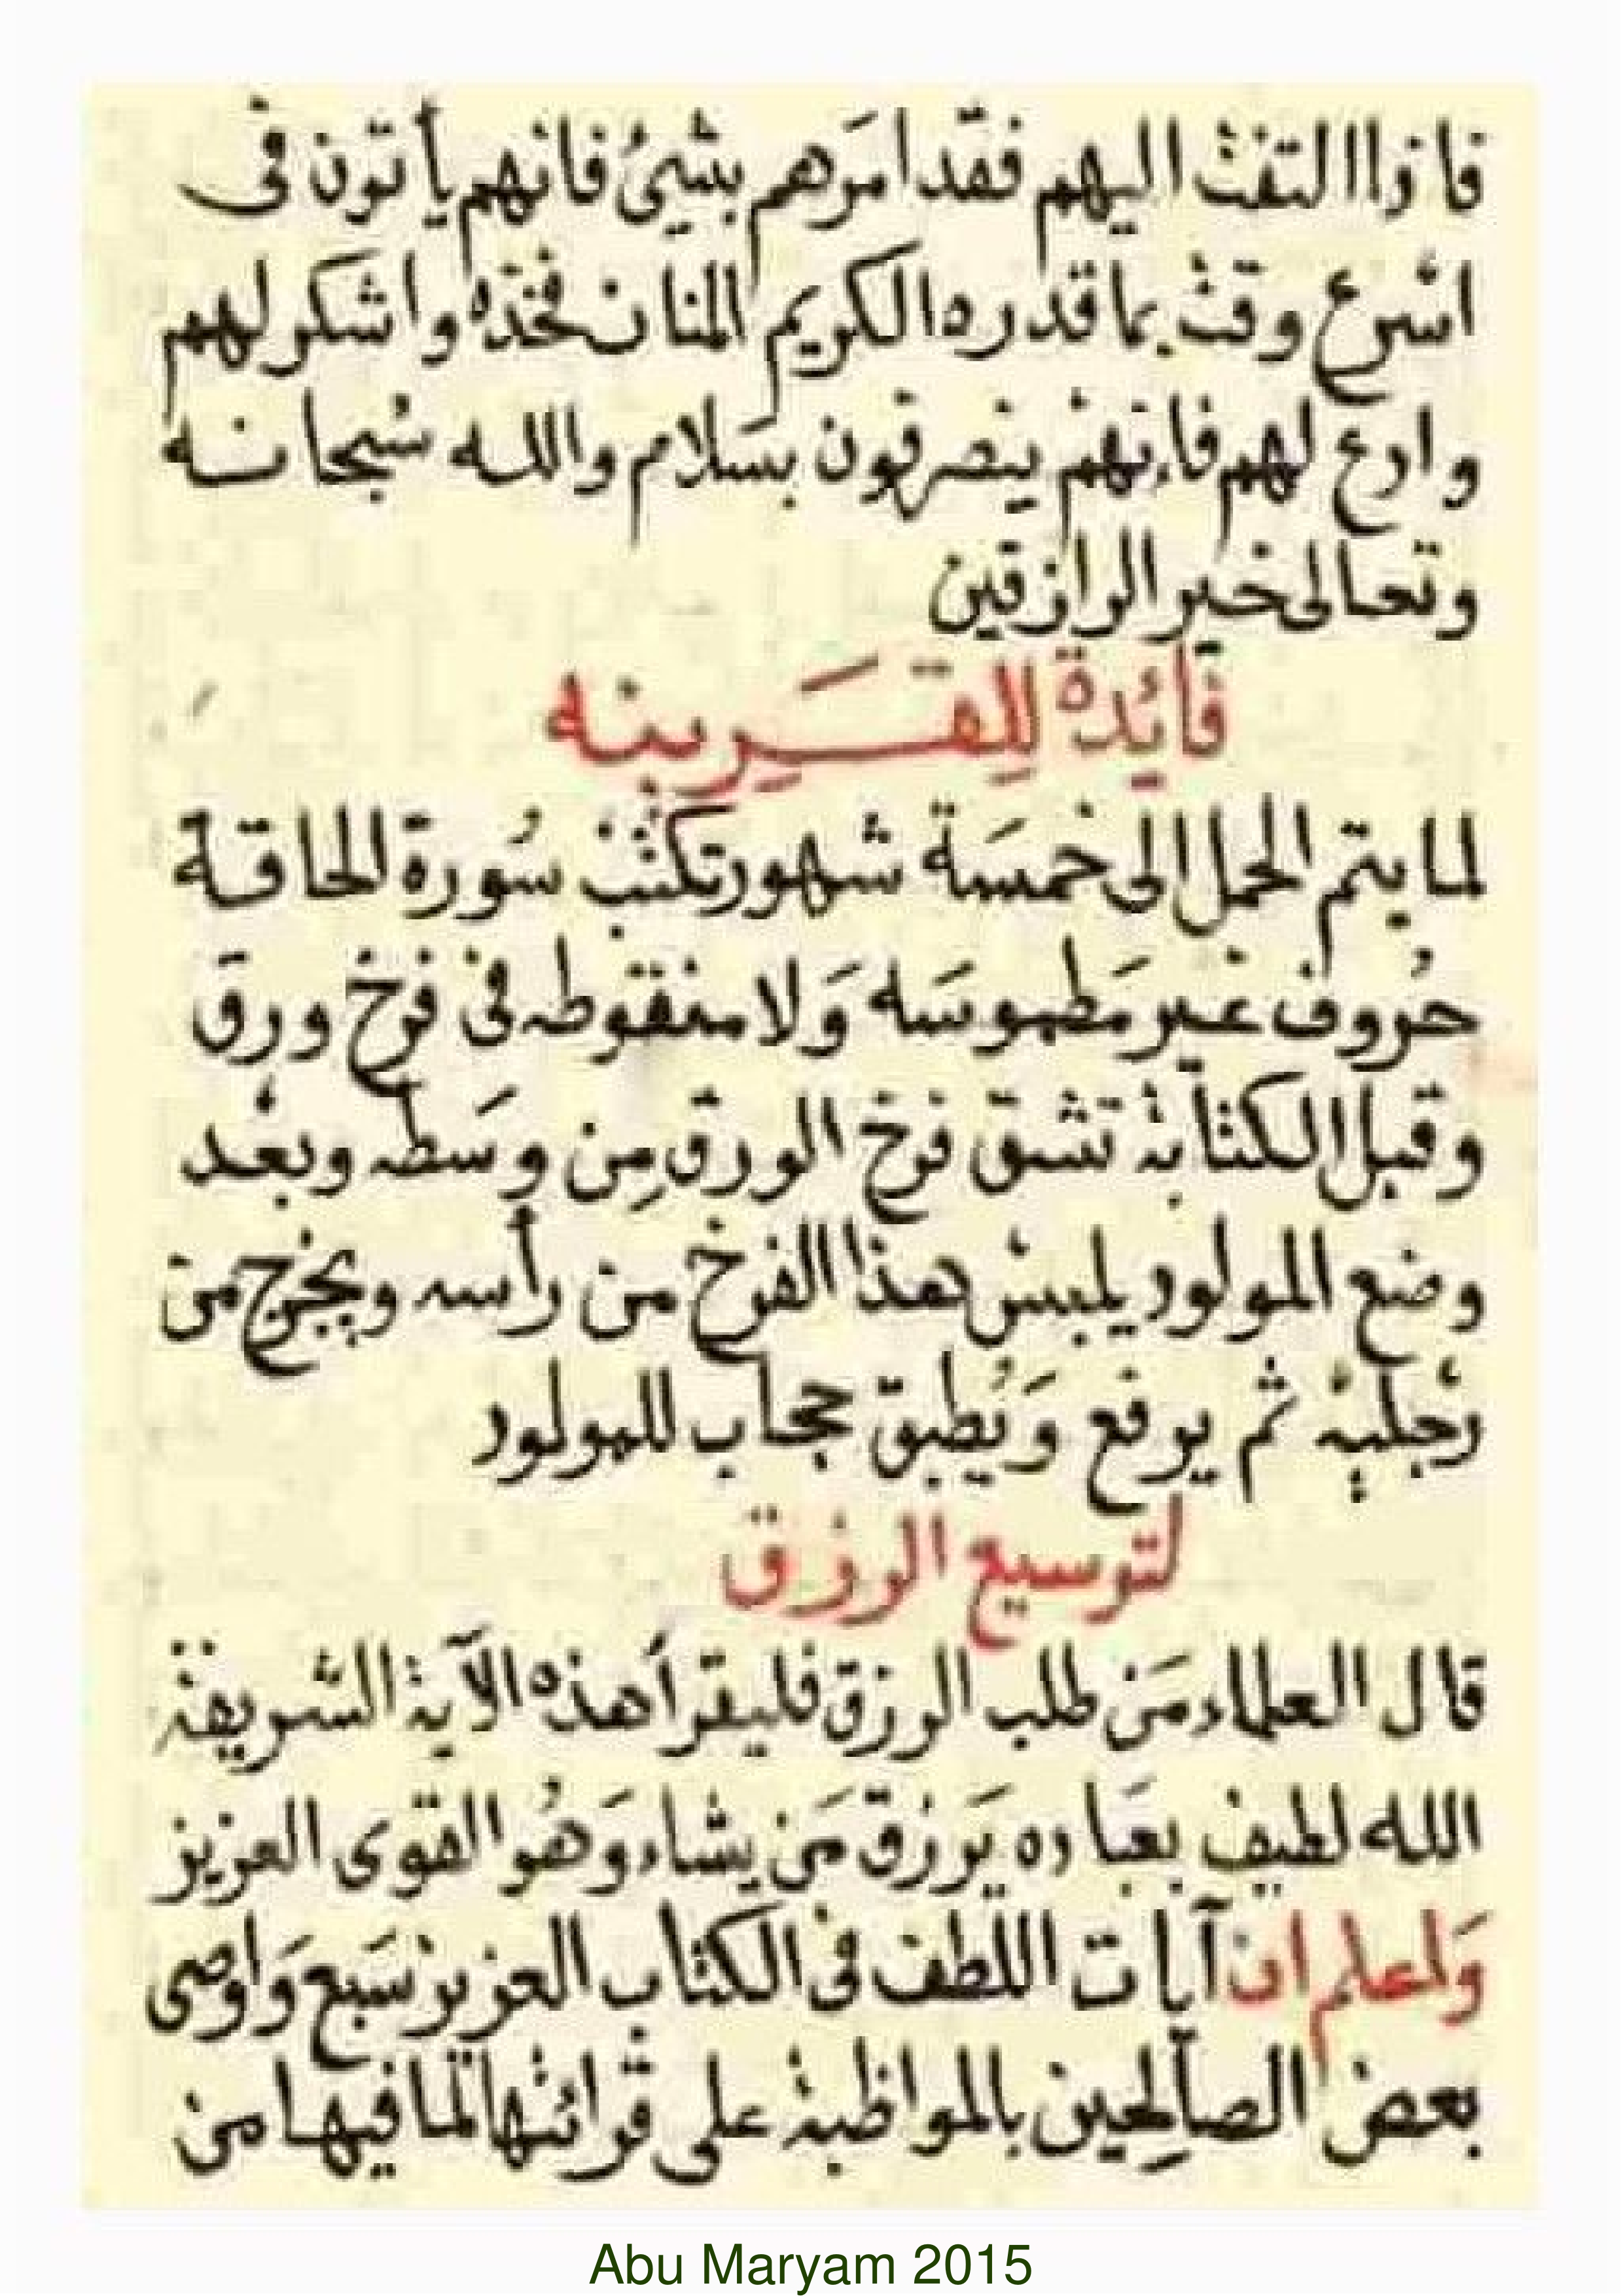 فاذا التفت اليهم فقد امَرهم بشيئ فانهم يأتون فى
اسْرع وقت بما قدره الكريم المنان فخذه واشكر لهم
وادع لهم فانهم ينصرفون بسَلام والله سُبحانه
وتعالى خير الرازقين
فائدة للِقَرِينه
لما يتم الحمل الى خمسَة شهور تكتب سُورة الحاقة
حُروف غير مَطموسَه وَلا منقوطه فى فرخ ورق
وقبل الكتابة تشق فرخ الورق مِن وسَطه وبعْد
وضع المولود يلبسْ هذا الفرخ من رأسه ويخرج من
رجْليه ثم يرفع وَيُطبق حجاب للمولود
لتوسيع الرزق
قال العلماء مَن طلب الرزق فليقرأ هذه الآية الشريفة
الله لطيف بعبَاده يَرزق مَن يشاء وَهُو القوى العزيز
وَاعلم ان آيات اللطف فى الكتاب العزيز سَبع وَاوصى
بعض الصالِحين بالمواظبة على قرائتها لما فيها من
Abu Maryam 2015